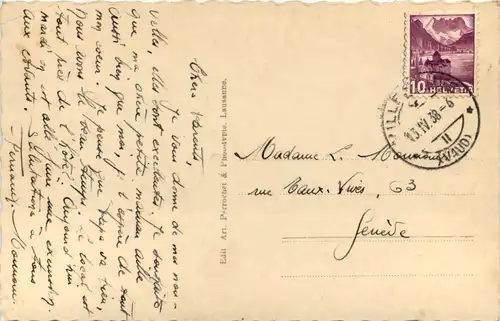 Chers parents
Je vous donne de mes nou-
velles, elles sont excellentes, je souhaite
que ma chère petite maman aille
aussi bien que moi, j'espère de tout
mon coeur. Je pense que papa va bien,
Nous avons le beau temps. Le local est
tout près de l'hôtel. Aujourd'hui
mardi on est allé faire une
aux Avants. Salutations à tous
Edit. Art. Perrochet & Lausanne.
10 HELVETIA
13.IV.38-6
(VAUD)
Madame L.
rue Eaux-Vives, 63
Genève